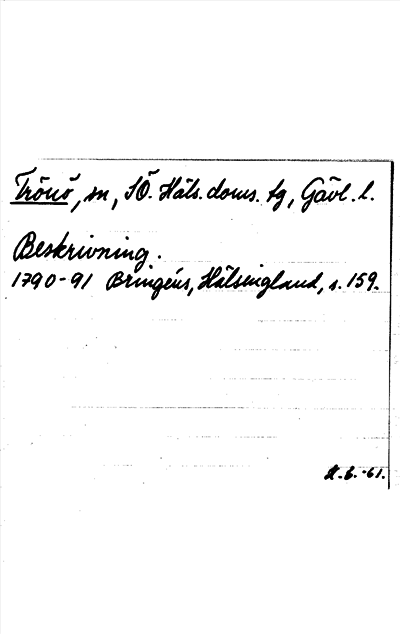 Trönö, sn, SÖ. Häls. doms. tg, Gävl. l.
Beskrivning.
1790-91 Bringéus, Hälsingland, s. 159.